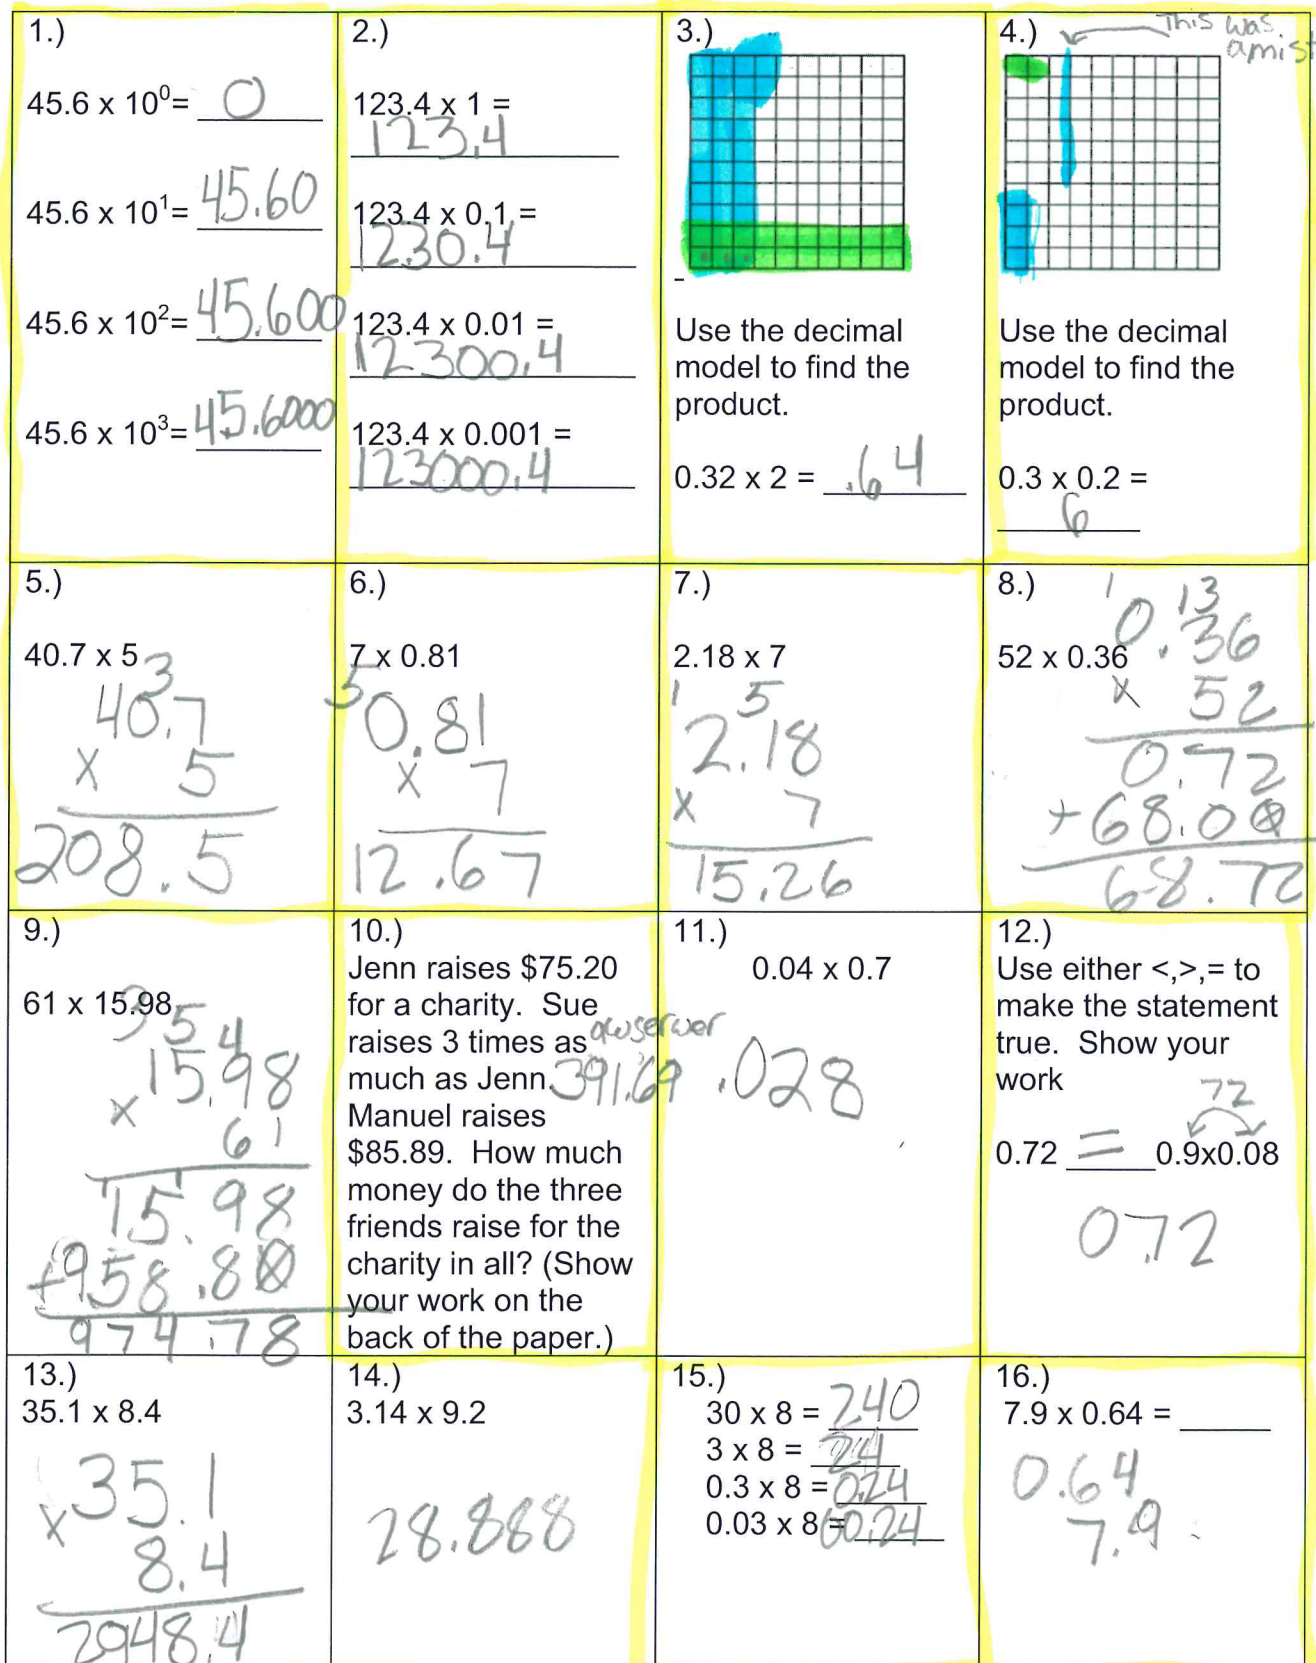 1.)
45.6 x 10⁰= 0
45.6 x 10¹= 45.60
45.6 x 10²= 45.600
45.6 x 10³= 45.6000
2.)
123.4 x 1 =
123.4
123.4 x 0.1 =
1230.4
123.4 x 0.01 =
12300.4
123.4 x 0.001 =
123000.4
3.)
Use the decimal
model to find the
product.
0.32 x 2 = .64
4.)
This was
a mist
Use the decimal
model to find the
product.
0.3 x 0.2 =
6
5.)
40.7 x 5
3
40.7
x 5
208.5
6.)
7 x 0.81
5
0.81
x 7
12.67
7.)
2.18 x 7
1 5
2.18
x 7
15.26
8.)
52 x 0.36
1 13
0.36
x 52
0.72
+68.00
68.72
9.)
61 x 15.98
3 5 4
15.98
x 61
15.98
+958.80
974.78
10.)
Jenn raises $75.20
for a charity. Sue
raises 3 times as
much as Jenn.
Manuel raises
$85.89. How much
money do the three
friends raise for the
charity in all? (Show
your work on the
back of the paper.)
awserwer
391.69
11.)
0.04 x 0.7
.028
12.)
Use either <,>,= to
make the statement
true. Show your
work
72
0.72 = 0.9x0.08
0.72
13.)
35.1 x 8.4
35.1
x 8.4
2948.4
14.)
3.14 x 9.2
28.888
15.)
30 x 8 = 240
3 x 8 = 24
0.3 x 8 = 0.24
0.03 x 8 = 00.24
16.)
7.9 x 0.64 =
0.64
7.9